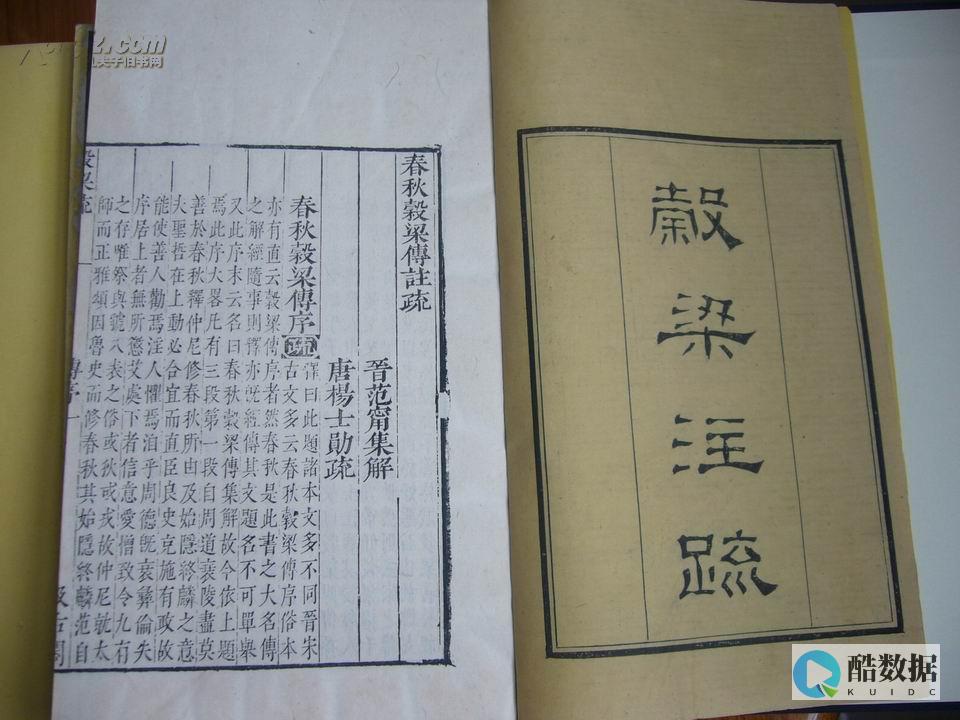 穀梁注疏
春秋穀梁傳註疏
晉范甯集解
唐楊士勛疏
春秋穀梁傳序
疏
釋曰此題諸本文多不同晉宋
古文多云春秋穀梁傳序俗本
亦有直云穀梁傳序者然春秋是此書之大名傳
之解經隨事則釋亦既經傳共文題名不可單舉
又此序末云名曰春秋穀梁傳集解故今依上題
焉此序大畧凡有三段第一段自周道衰陵盡莫
善於春秋釋仲尼修春秋所由及始隱終麟之意
夫聖哲在上動必合宜而直臣良史克施有政故
能使善人勸焉淫人懼焉洎乎周德既衰彝倫失
序居上者無所懲艾處下者信意愛憎致令九有
之存唯祭與號八表之俗或狄或戎故仲尼就太
師而正雅頌因魯史而修春秋其始隱終麟范自
穀梁疏
傳序
一
汲古閣
夫子旧书网
酷数据
KUIDC